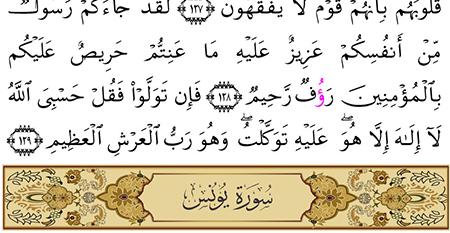 قُلُوبَهُم بِأَنَّهُمْ قَوْمٌ لَّا يَفْقَهُونَ ﴿١٢٧﴾ لَقَدْ جَاءَكُمْ رَسُولٌ
مِّنْ أَنفُسِكُمْ عَزِيزٌ عَلَيْهِ مَا عَنِتُّمْ حَرِيصٌ عَلَيْكُم
بِالْمُؤْمِنِينَ رَءُوفٌ رَّحِيمٌ ﴿١٢٨﴾ فَإِن تَوَلَّوْا فَقُلْ حَسْبِيَ اللَّهُ
لَا إِلَٰهَ إِلَّا هُوَ ۖ عَلَيْهِ تَوَكَّلْتُ ۖ وَهُوَ رَبُّ الْعَرْشِ الْعَظِيمِ ﴿١٢٩﴾
سُورَةُ يُونُسَ